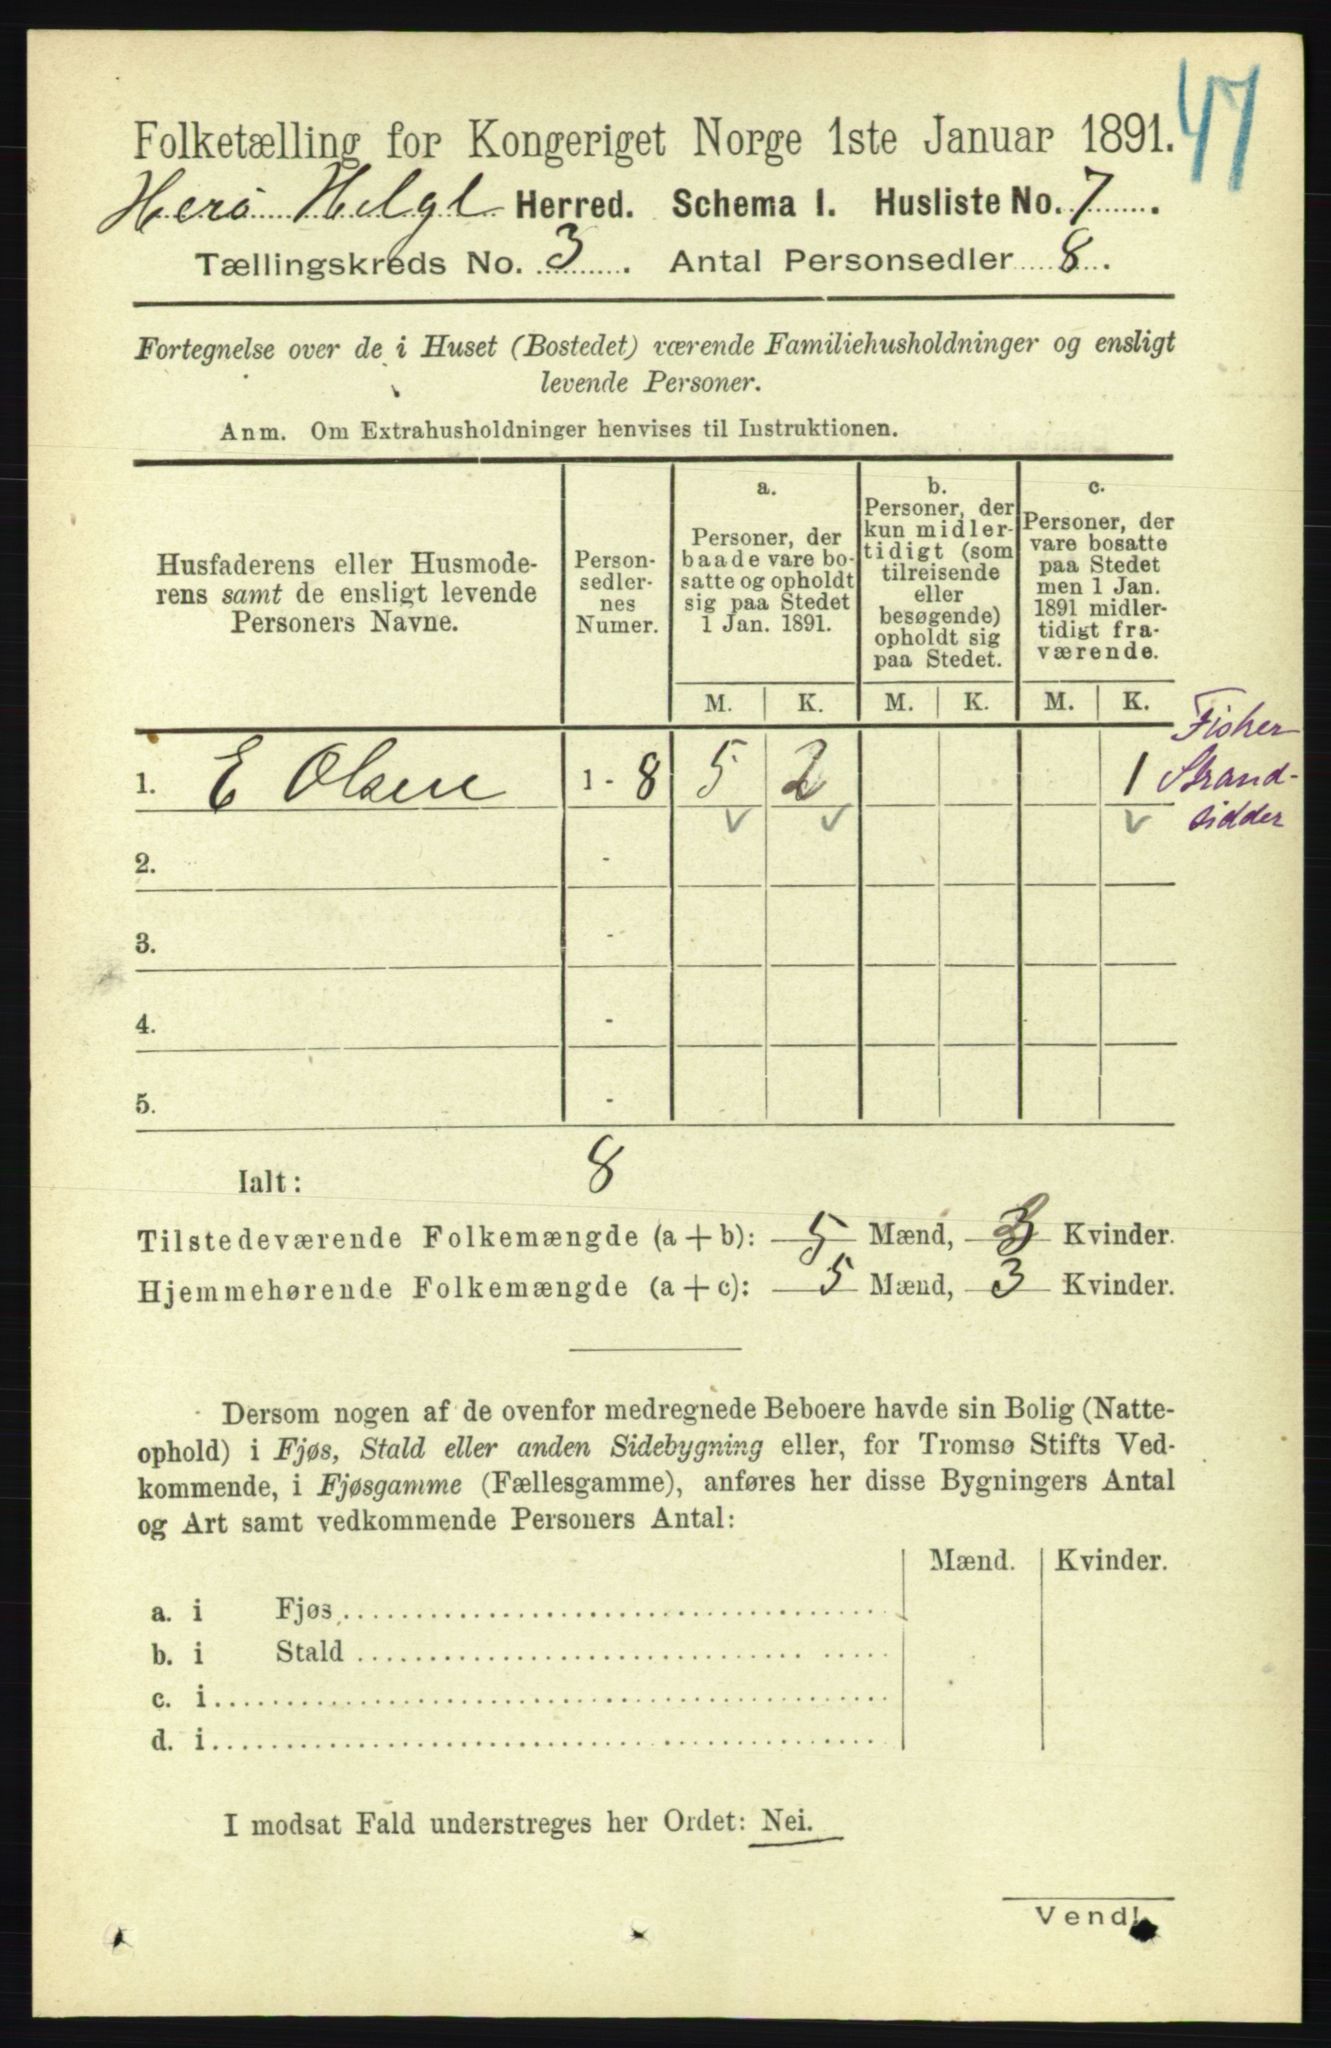 47
Folketælling for Kongeriget Norge 1ste Januar 1891.
Herö Helgl Herred. Schema I. Husliste No. 7.
Tællingskreds No. 3. Antal Personsedler 8.
Fortegnelse over de i Huset (Bostedet) værende Familiehusholdninger og ensligt
levende Personer.
Anm. Om Extrahusholdninger henvises til Instruktionen.
Husfaderens eller Husmode-
rens samt de ensligt levende
Personers Navne.
Person-
sedler-
nes
Numer.
a.
Personer, der
baade vare bo-
satte og opholdt
sig paa Stedet
1 Jan. 1891.
b.
Personer, der
kun midler-
tidigt (som
tilreisende
eller
besøgende)
opholdt sig
paa Stedet.
c.
Personer, der
vare bosatte
paa Stedet
men 1 Jan.
1891 midler-
tidigt fra-
værende.
M. K. M. K. M. K.
1. E Olsen 1 - 8 5 2 1
Fisker
Strand-
sidder
2. -
3. -
4. -
5. -
Ialt: 8
Tilstedeværende Folkemængde (a + b): 5 Mænd, Kvinder.
Hjemmehørende Folkemængde (a + c): 5 Mænd, 3 Kvinder.
Dersom nogen af de ovenfor medregnede Beboere havde sin Bolig (Natte-
ophold) i Fjøs, Stald eller anden Sidebygning eller, for Tromsø Stifts Ved-
kommende, i Fjøsgamme (Fællesgamme), anføres her disse Bygningers Antal
og Art samt vedkommende Personers Antal:
Mænd. Kvinder.
a. i Fjøs
b. i Stald
c. i
d. i
I modsat Fald understreges her Ordet: Nei.
Vend!